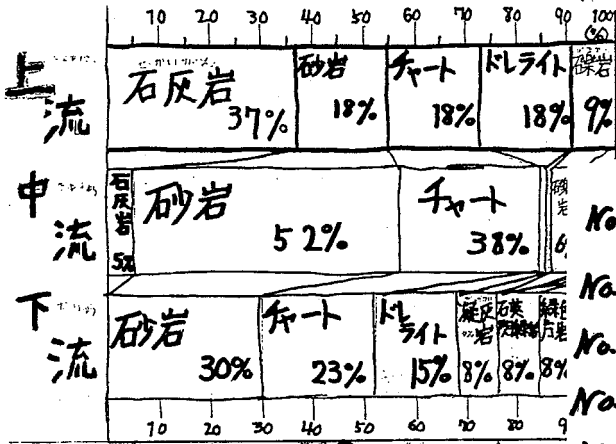 10 20 30 40 50 60 70 80 90 100
(%)
上流
石灰岩 37%
砂岩 18%
チャート 18%
ドレライト 18%
礫岩 9%
中流
石灰岩 5%
砂岩 52%
チャート 38%
No
下流
砂岩 30%
チャート 23%
ドレライト 15%
凝灰岩 8%
石英 8%
緑色片岩 8%
No
No
No
10 20 30 40 50 60 70 80 9